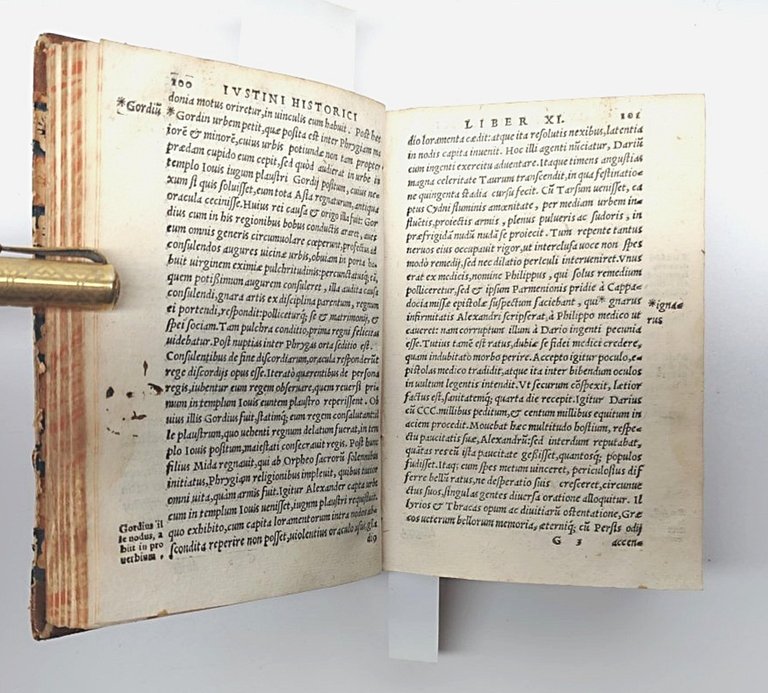 100 IVSTINI HISTORICI
donia motus oriretur, in uinculis eum habuit. Post hæc
*Gordiū *Gordin urbem petit, quæ posita est inter Phrygiam ma
iorē & minorē, cuius urbis potiundæ non tam propter
prædam cupido eum cepit, sed quòd audierat in urbe in
templo Iouis iugum plaustri Gordij positum, cuius ne
xum si quis soluisset, eum tota Asia regnaturum, antiqua
oracula cecinisse. Huius rei causa & origo illa fuit. Gor
dius cum in his regionibus bobus conductis araret, aues
eum omnis generis circumuolare cœperunt, profectus ad
consulendos augures uicinæ urbis, obuiam in porta ha
buit uirginem eximiæ pulchritudinis: percunctatusq; eā,
quem potißimum augurem consuleret, illa audita causa
consulendi, gnara artis ex disciplina parentum, regnum
ei portendi, respondit: polliceturq; se & matrimonij, &
spei sociam. Tam pulchra conditio, prima regni felicitas
uidebatur. Post nuptias inter Phrygas orta seditio est.
Consulentibus de fine discordiarum, oracula responderūt
rege discordijs opus esse. Iteratò quærentibus de persona
regis, iubentur eum regem obseruare, quem reuersi pri
mum in templum Iouis euntem plaustro reperissent. Ob
uius illis Gordius fuit, statimq; eum regem consalutant. Il
le plaustrum, quo uehenti regnum delatum fuerat, in tem
plo Iouis positum, maiestati consecrauit regiæ. Post hunc
filius Mida regnauit, qui ab Orpheo sacrorū solennibus
initiatus, Phrygiam religionibus impleuit, quibus tutior
omni uita, quàm armis fuit. Igitur Alexander capta urbe
cum in templum Iouis uenisset, iugum plaustri requisiuit.
quo exhibito, cum capita loramentorum intra nodos abs
scondita reperire non posset, uiolentius oraculo usus, gla
dio
Gordius il
le nodus, a
biit in pro
uerbium.
LIBER XI. 101
dio loramenta cædit: atque ita resolutis nexibus, latentia
in nodis capita inuenit. Hoc illi agenti nūciatur, Dariū
cum ingenti exercitu aduentare. Itaque timens angustias
magna celeritate Taurum transcendit, in qua festinatio-
ne quingenta stadia cursu fecit. Cū Tarsum uenisset, ca
ptus Cydni fluminis amœnitate, per mediam urbem in-
fluētis, proiectis armis, plenus pulueris ac sudoris, in
præfrigidā nudū nudā se proiecit. Tum repente tantus
neruos eius occupauit rigor, ut interclusa uoce non spes
modò remedij, sed nec dilatio periculi inueniretur. Vnus
erat ex medicis, nomine Philippus, qui solus remedium
polliceretur, sed & ipsum Parmenionis pridie à Cappa-
docia missæ epistolæ suspectum faciebant, qui* gnarus
*igna
rus
infirmitatis Alexandri scripserat, à Philippo medico ut
caueret: nam corruptum illum à Dario ingenti pecunia
esse. Tutius tamē est ratus, dubiæ se fidei medici credere,
quàm indubitatò morbo perire. Accepto igitur poculo, e-
pistolas medico tradidit, atque ita inter bibendum oculos
in uultum legentis intendit. Vt securum cōspexit, lætior
factus est, sanitatemq; quarta die recepit. Igitur Darius
cū CCC. millibus peditum, & centum millibus equitum in
aciem procedit. Mouebat hæc multitudo hostium, respe-
ctu paucitatis suæ, Alexandrū: sed interdum reputabat,
quātas res cū ista paucitate geßisset, quantosq; populos
fudisset. Itaq; cum spes metum uinceret, periculosius dif
ferre bellū ratus, ne desperatio suis cresceret, circunue
ctus suos, singulas gentes diuersa oratione alloquitur. Il
lyrios & Thracas opum ac diuitiarū ostentatione, Græ
cos ueterum bellorum memoria, æterniq; cū Persis odij
G 3 accen-